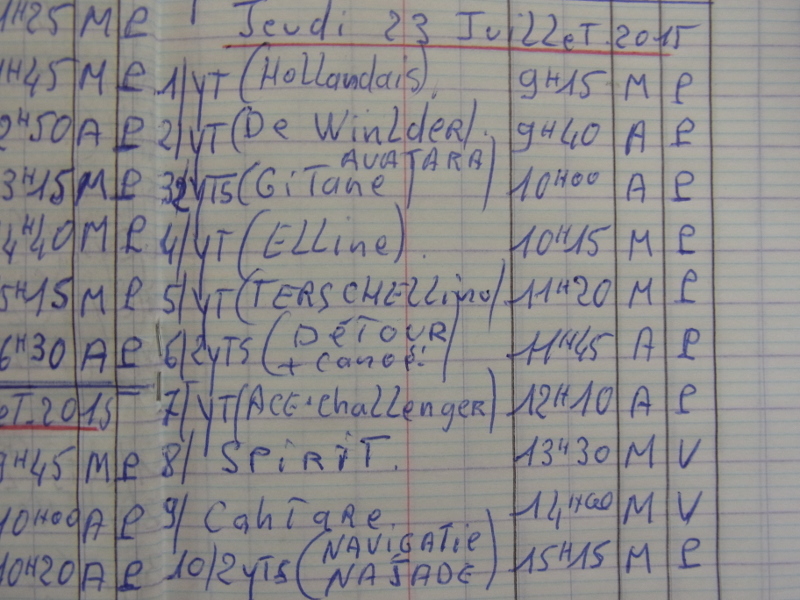 1H25 M P
1H45 M P
2H50 A P
3H15 M P
4H40 M P
5H15 M P
6H30 A P
eT.2015
9H45 M P
10H00 A P
10H20 A P
Jeudi 23 JuilleT.2015
1/ yT (Hollandais). 9H15 M P
2/ yT (De WinLder). 9H40 A P
3/ 2yTS (GiTane / AVATARA) 10H00 A P
4/ yT (ELLine). 10H15 M P
5/ yT (TERSCHELLing) 11H20 M P
6/ 2yTS (DÉTOUR + canoë.) 11H45 A P
7/ yT (ACE-challenger) 12H10 A P
8/ SPiRiT. 13H30 M V
9/ CahTaRe 14H00 M V
10/ 2yTS (NAViGATie NAJADE) 15H15 M P